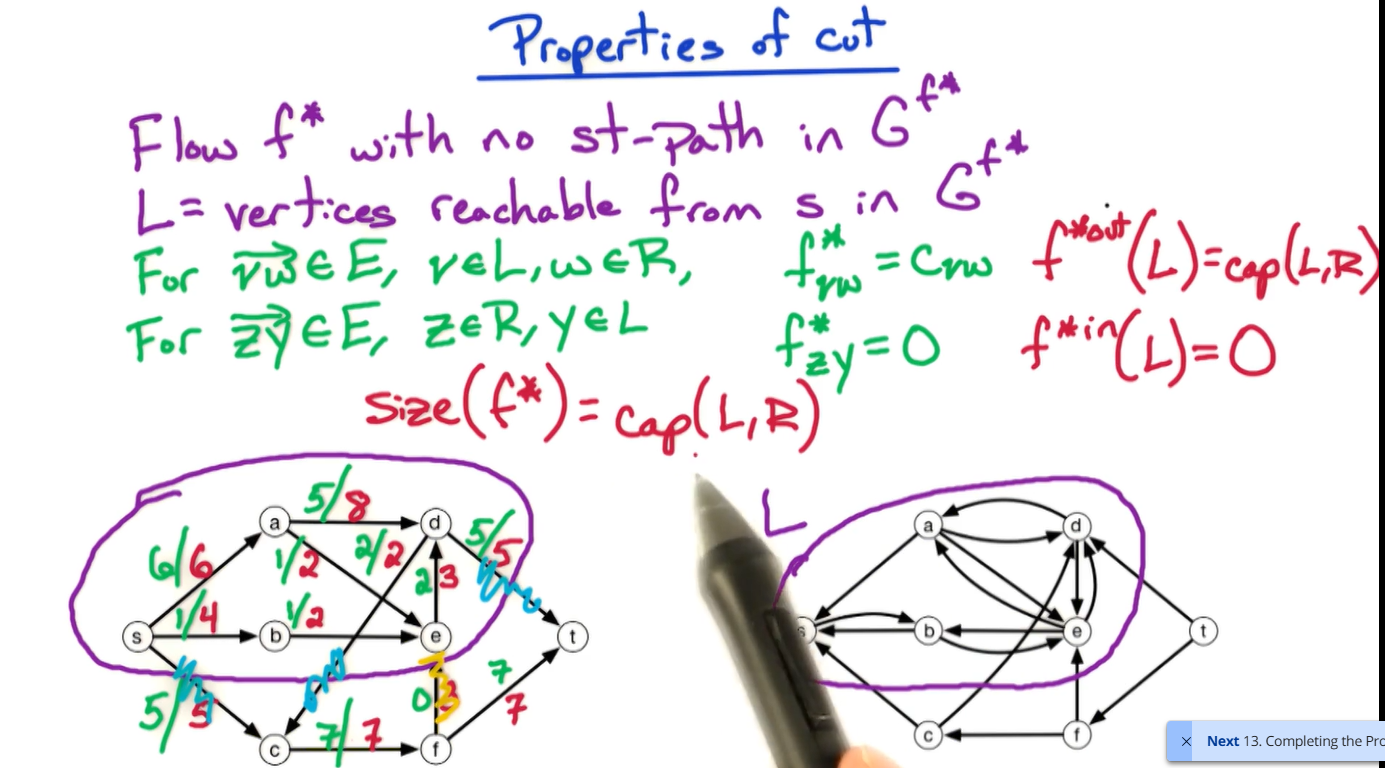 Properties of cut
Flow f* with no st-path in G^f*
L = vertices reachable from s in G^f*
For vw ∈ E, v∈L, w∈R, f*vw = Cvw f*out(L) = cap(L,R)
For zy ∈ E, z∈R, y∈L f*zy = 0 f*in(L) = 0
Size(f*) = cap(L,R)
5/8
L
a d a d
6/6 1/2 2/2 5/5
2 3
1/4 1/2
s b e t s b e t
7
0 3
5/5 7
7/7
c f c f
× Next 13. Completing the Pro